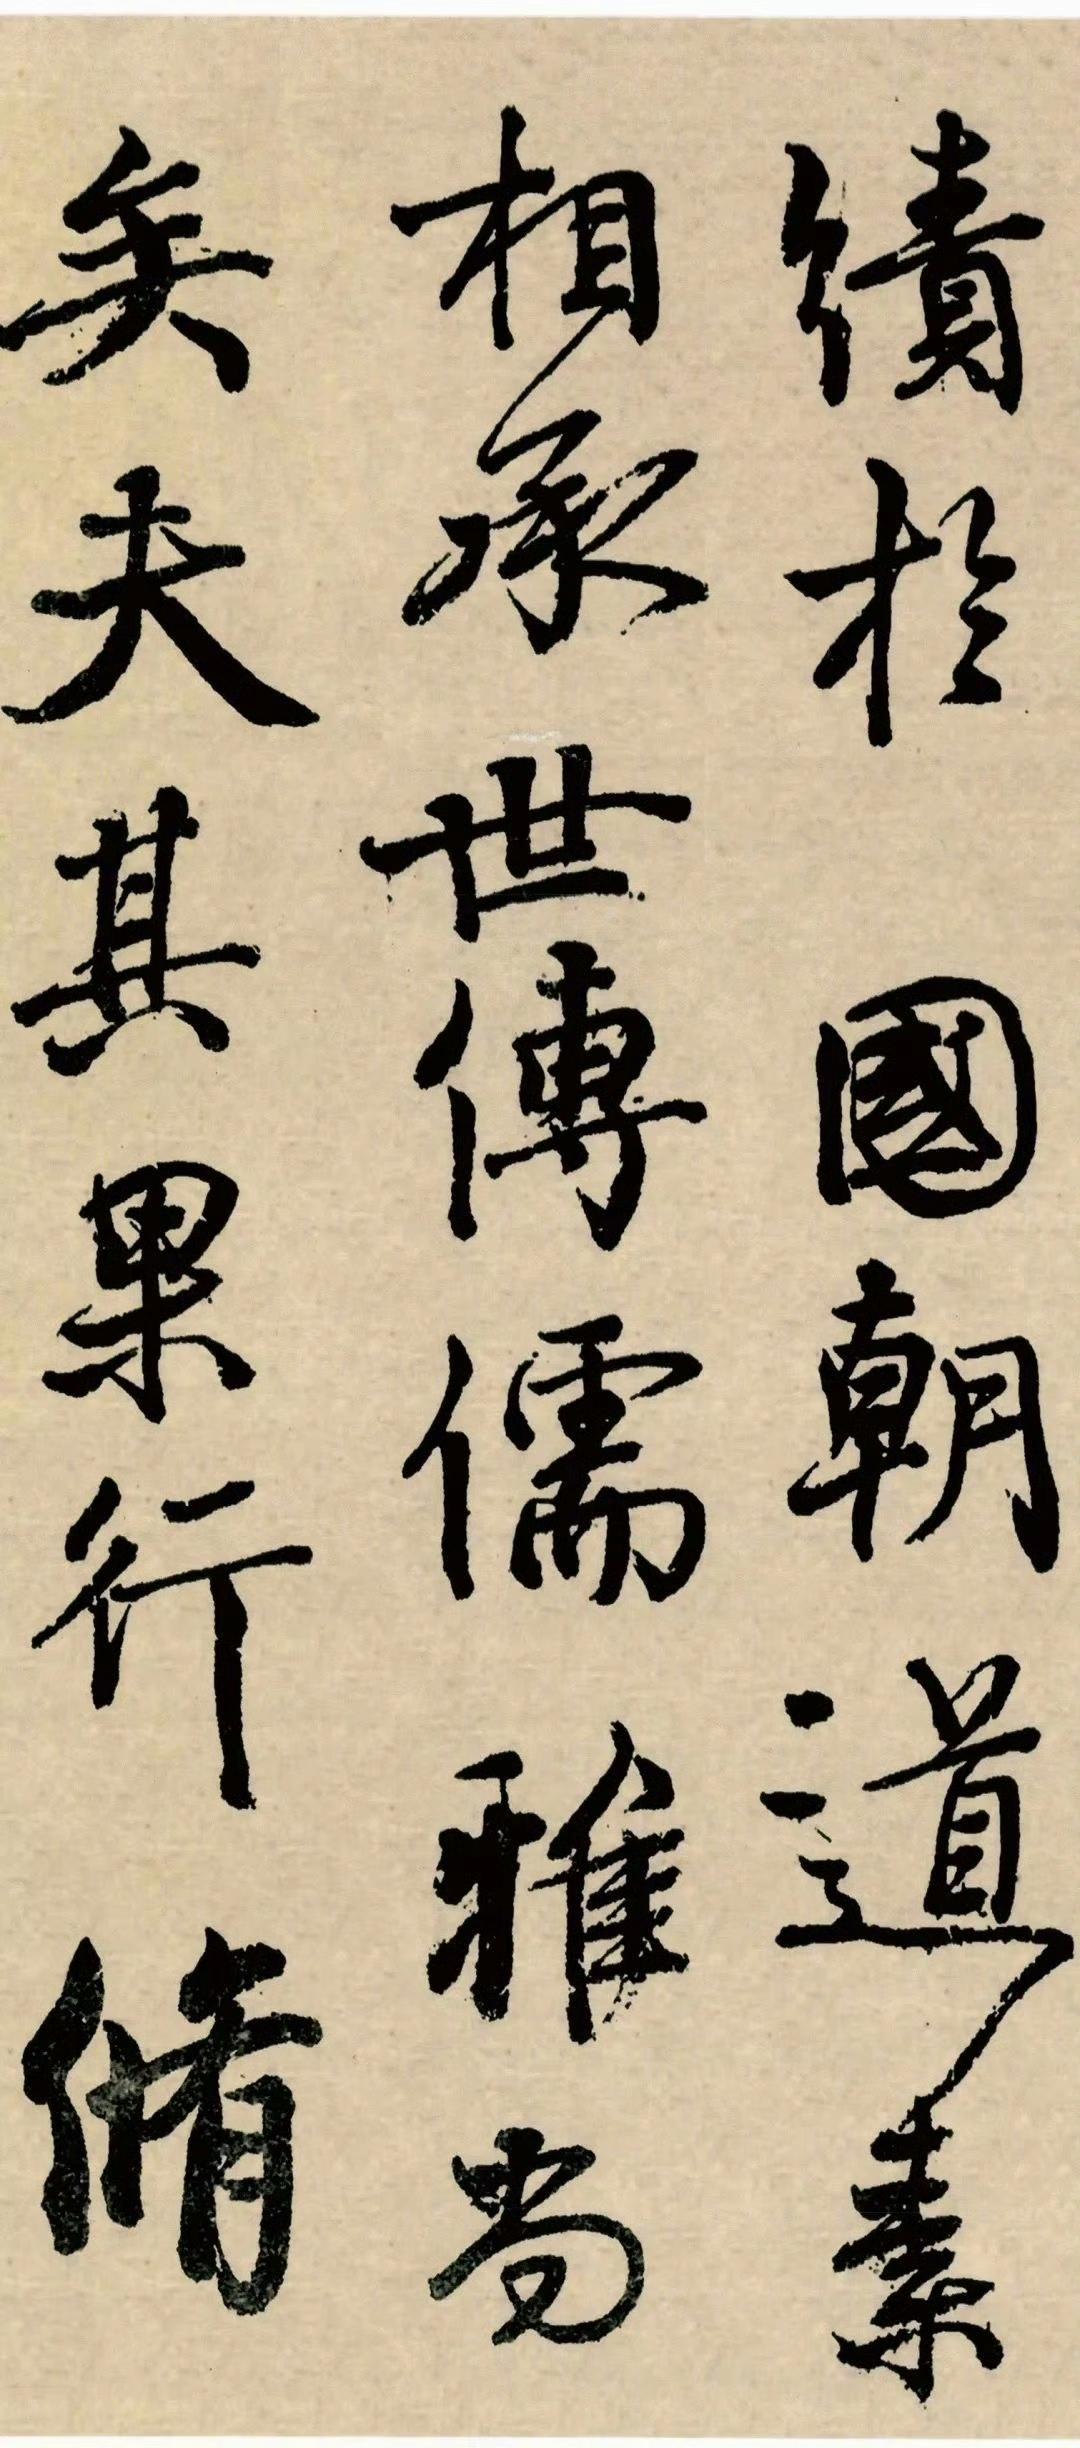 績於國朝道素
相承世傳儒雅尚
矣夫其果行脩